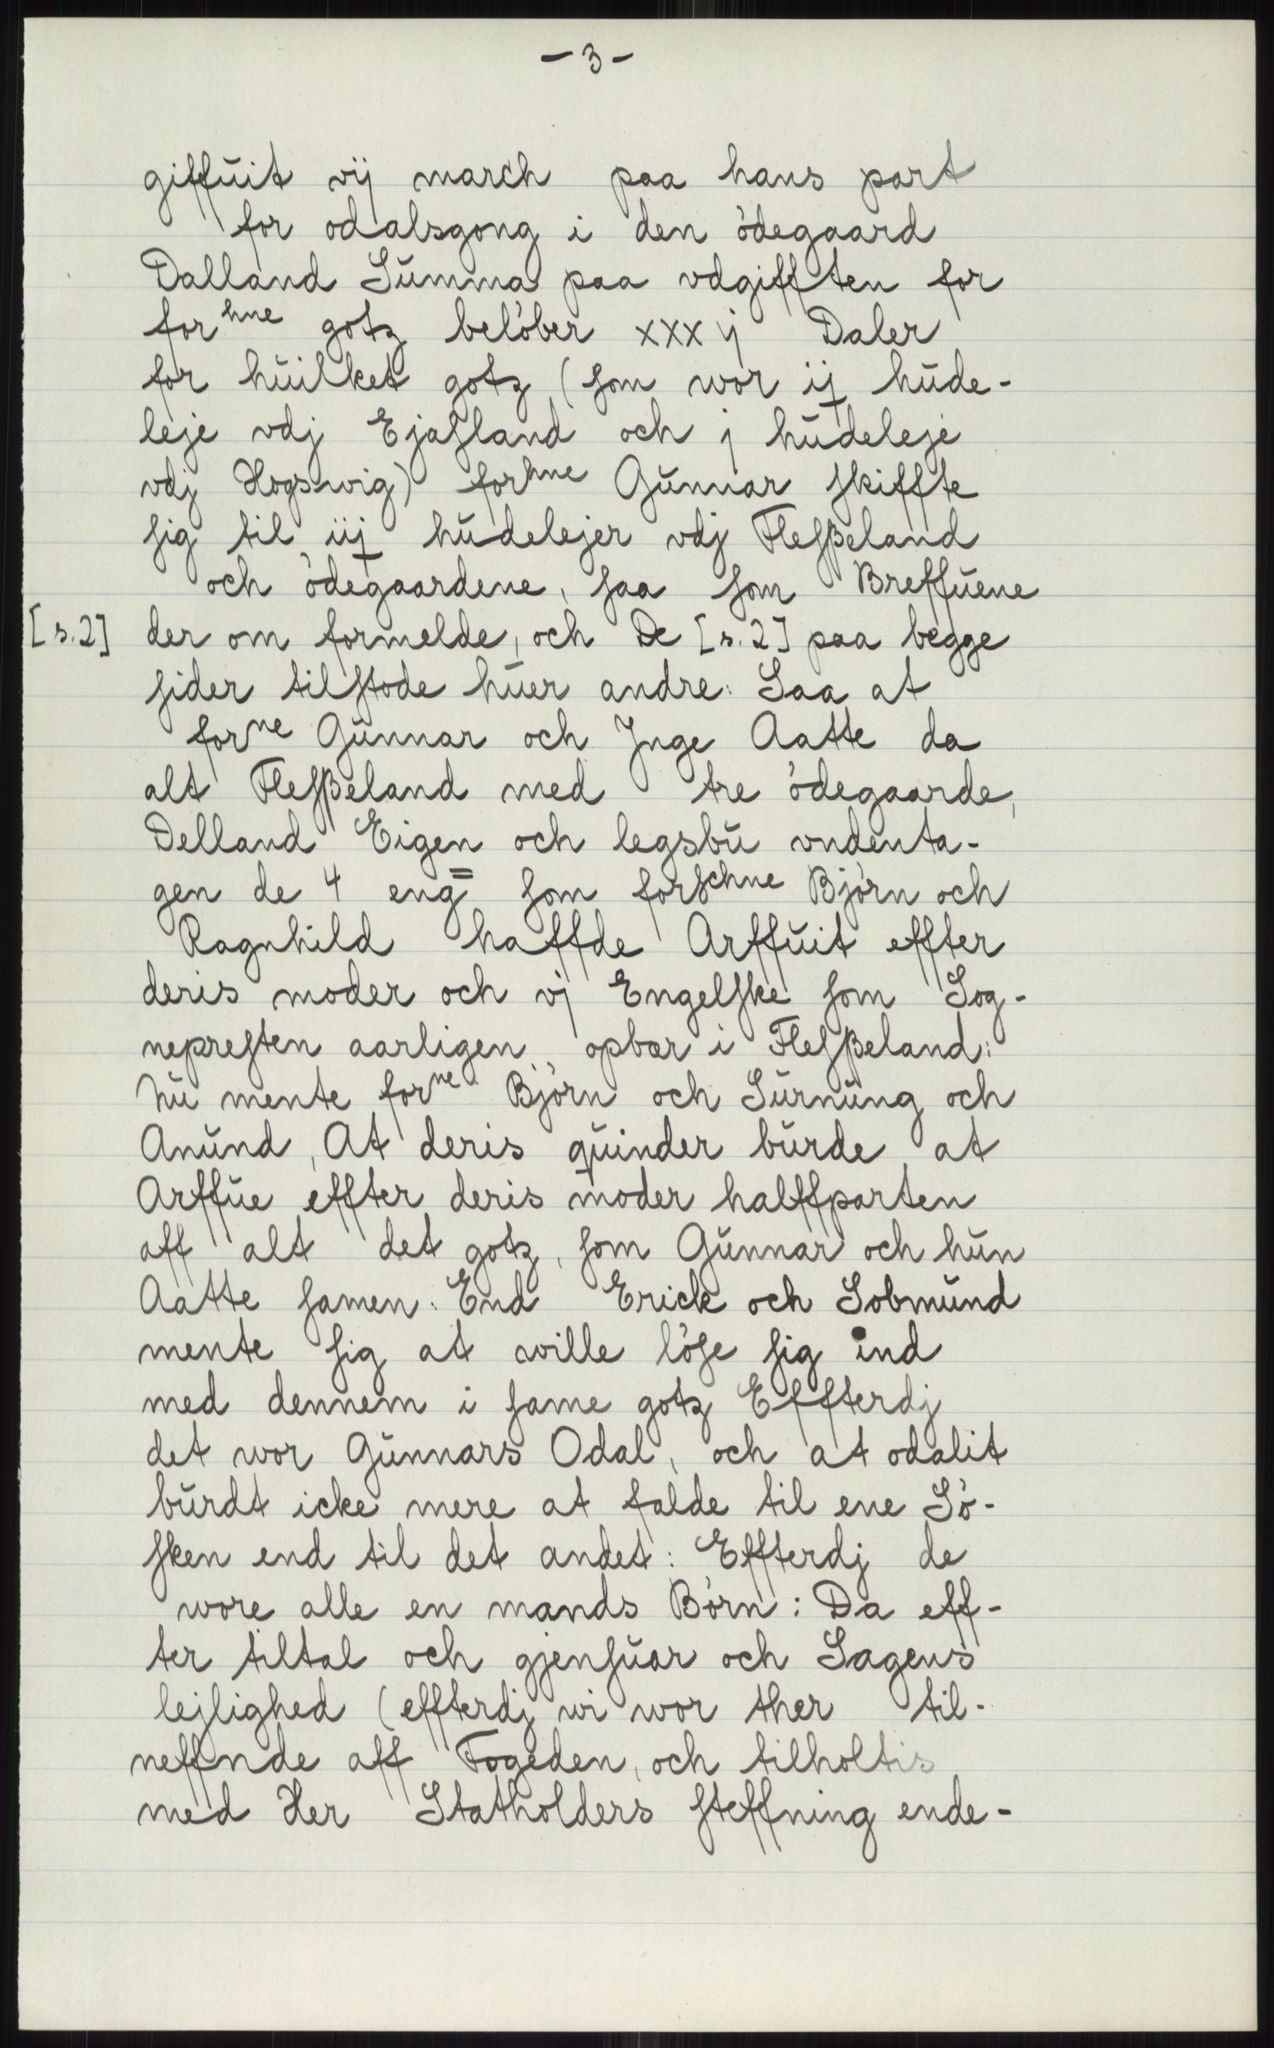 - 3 -
giffuit vij march paa hans part
for odalsgong i den ödegaard
Dalland Summa paa vdgifften for
forhne gotz belöber xxxj Daler
for huilket gotz (som wor ij hude-
leje vdj Ejasland och j hudeleje
vdj Hogswig) forhne Gunnar skiffte
sig til iij hudelejer vdj Flesßeland
och ödegaardene, saa som Breffuene
[s.2] der om formelde, och De [s.2] paa begge
sider tilstode huer andre: Saa at
forne Gunnar och Jnge Aatte da
alt Flesßeland med tre ödegaarde,
Delland Eigen och legsbu vndenta-
gen de 4 eng= som forschne Björn och
Ragnhild haffde Arffuit effter
deris moder och vj Engelske som Sog-
nepresten aarligen opbær i Flesßeland:
Nu mente forne Björn och Surnung och
Anund, At deris quinder burde at
Arffue effter deris moder halffparten
aff alt det gotz, som Gunnar och hun
Aatte samen: End Erick och Sobmund
mente sig at wille löse sig ind
med dennem i same gotz Effterdj
det wor Gunnars Odal, och at odalit
burdt icke mere at falde til ene Sö-
sken end til det andet: Effterdj de
wore alle en mands Börn: Da eff-
ter tiltal och gjensuar och Sagens
lejlighed (effterdj wi wor ther til-
neffnde aff Fogeden, och tilholtis
med Her Statholders steffning ende-